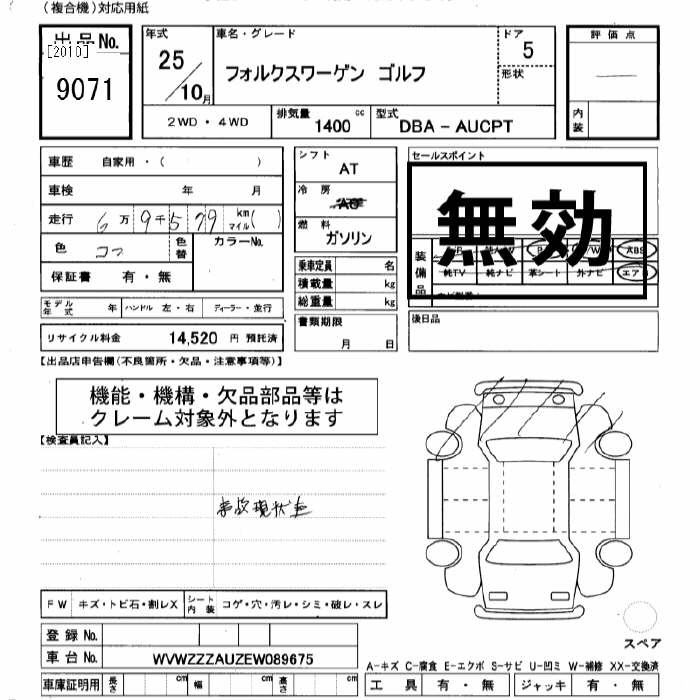 (複合機)対応用紙
出品No.
[2010]
9071
年式
25
10月
車名・グレード
フォルクスワーゲン ゴルフ
ドア
5
形状
2WD・4WD
排気量
1400 cc
型式
DBA－AUCPT
評価点
内装
車歴 自家用・( )
車検 年 月
走行 6万9千579 km マイル( )
色
色替
カラーNo.
保証書 有・無
モデル年式 年 ハンドル 左・右 ディーラー・並行
リサイクル料金 14,520 円 預託済
シフト
AT
冷房
燃料
ガソリン
乗車定員 名
積載量 kg
総重量 kg
書類期限
月 日
セールスポイント
無効
装備品
ABS
純TV 純ナビ 革シート 外ナビ エア
後日品
【出品店申告欄(不良箇所・欠品・注意事項等)】
機能・機構・欠品部品等は
クレーム対象外となります
【検査員記入】
事故現状車
FW キズ・トビ石・割レX
シート内装 コゲ・穴・汚レ・シミ・破レ・スレ
登録No.
車台No. WVWZZZAUZEW089675
車庫証明用 長さ cm 幅 cm 高さ cm
スペア
A-キズ C-腐食 E-エクボ S-サビ U-凹ミ W-補修 XX-交換済
工具 有・無 ジャッキ 有・無